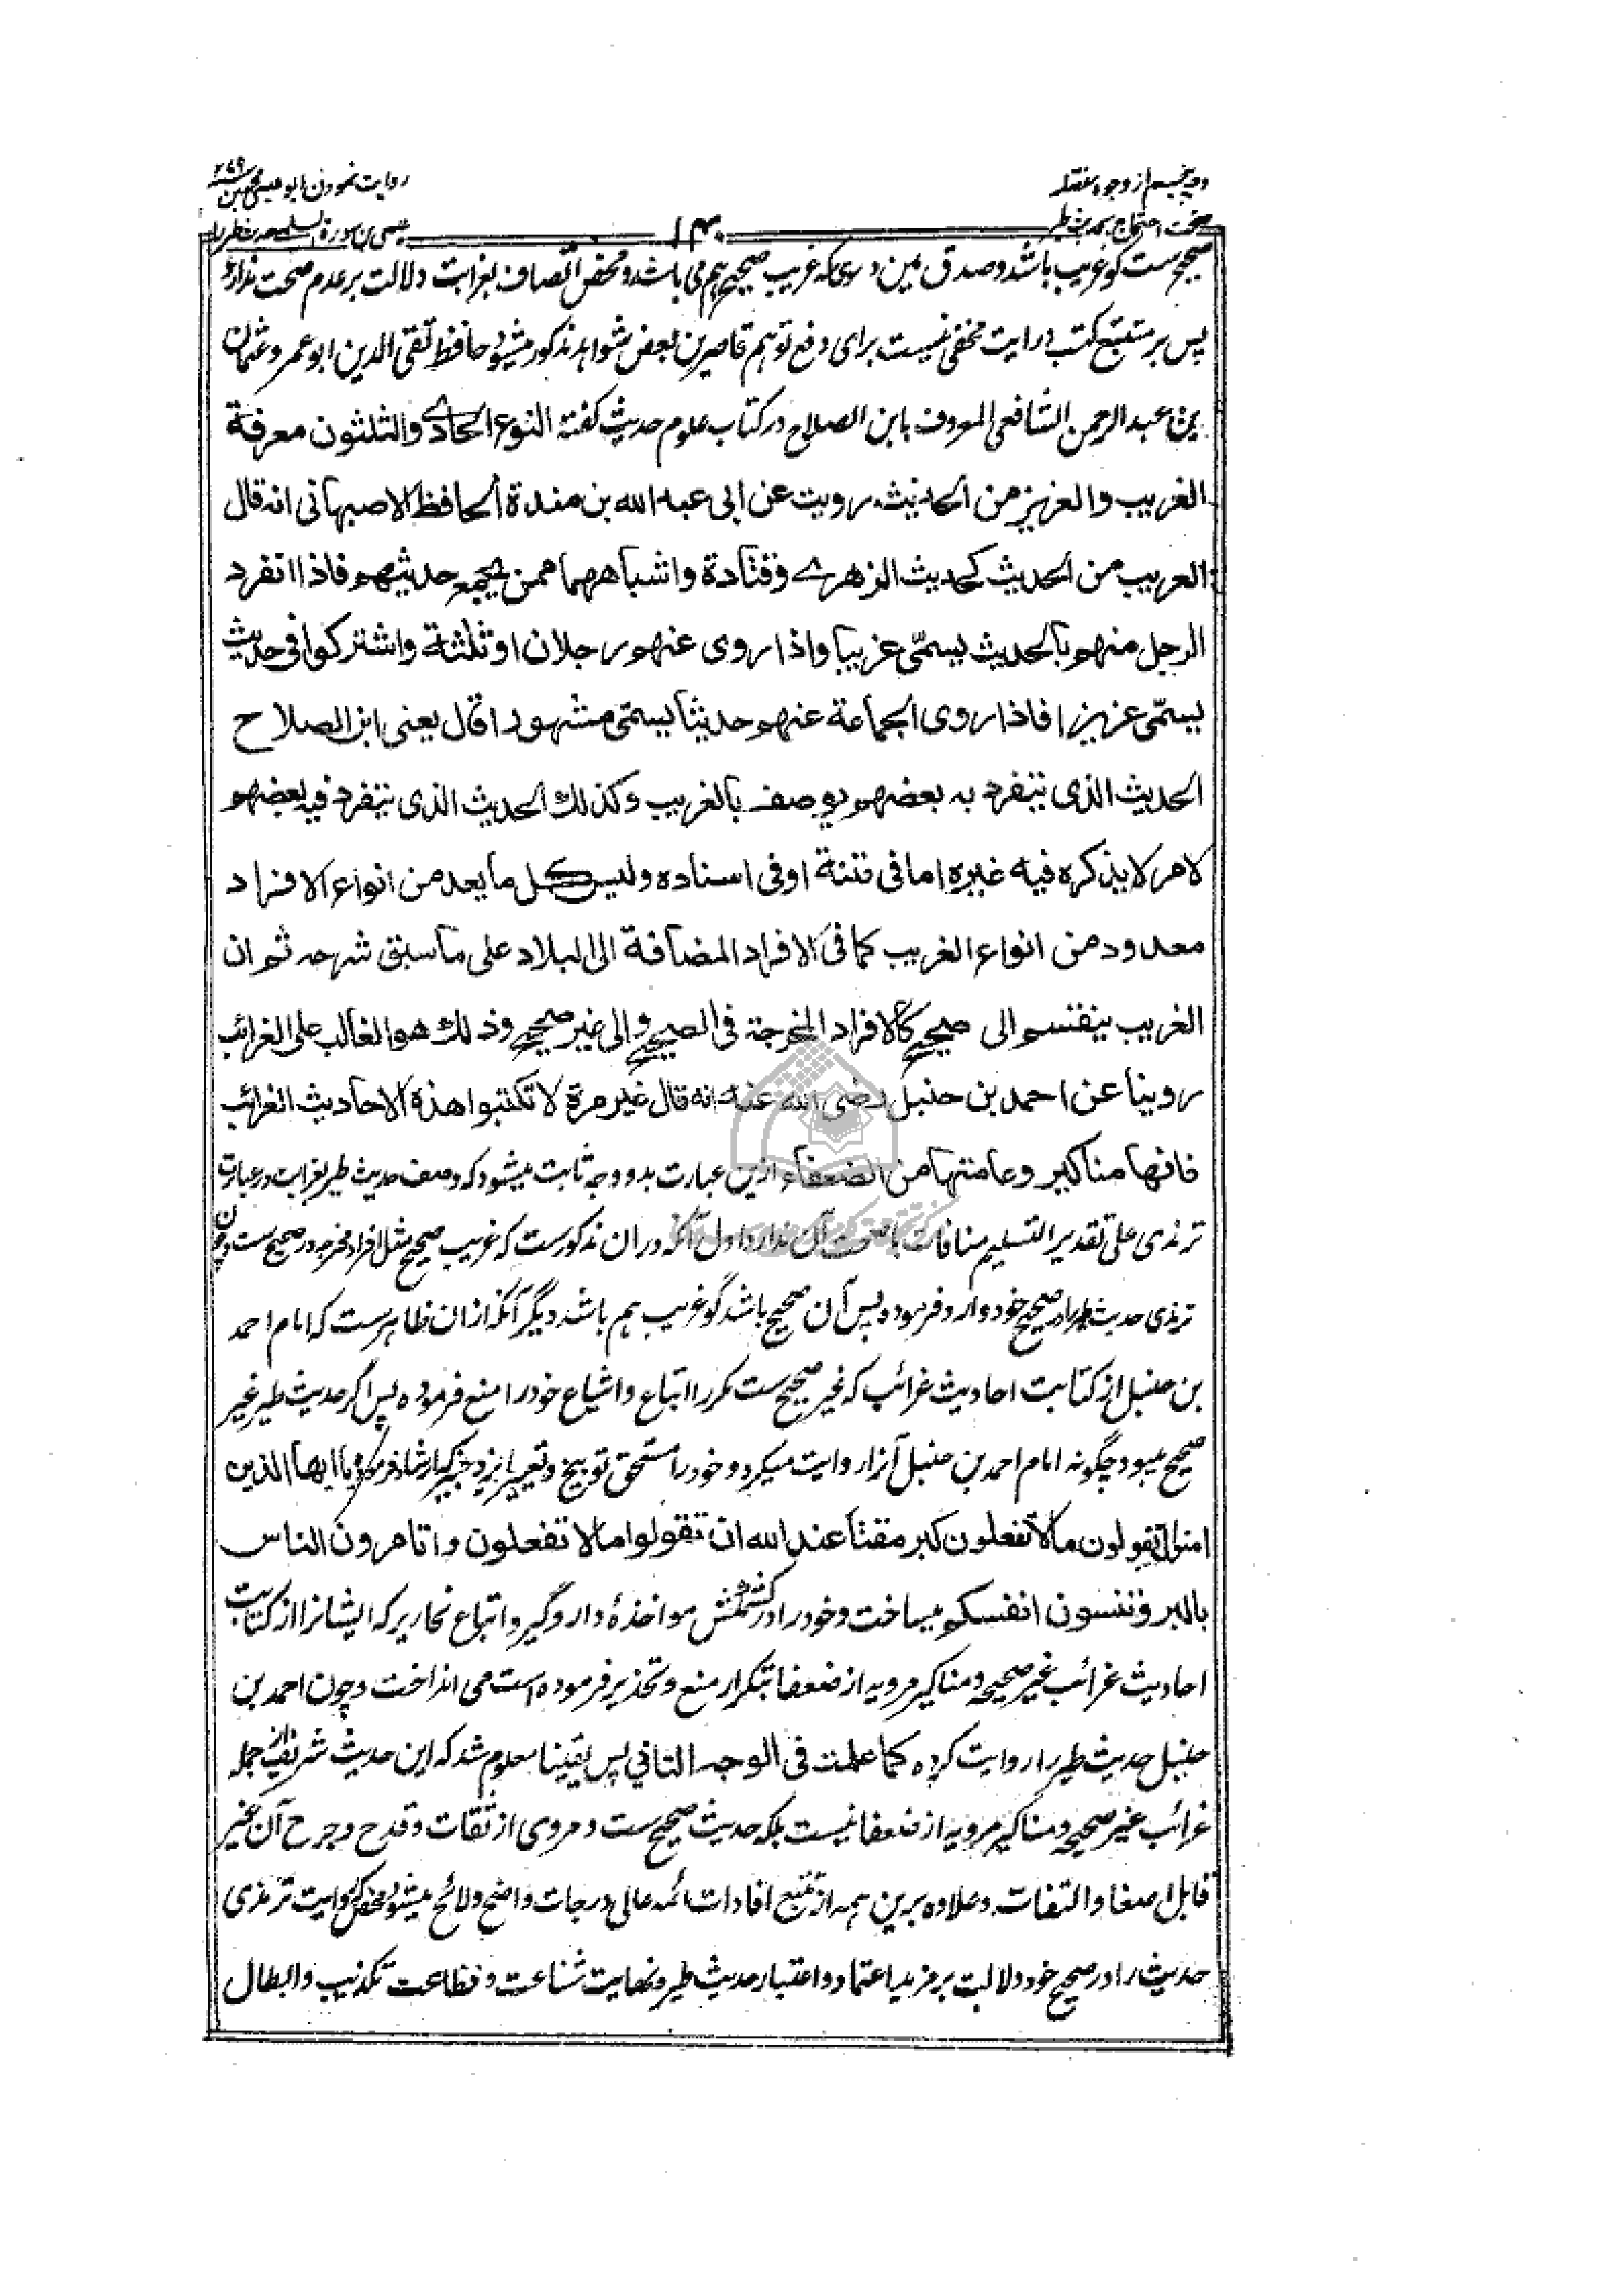 وجه پنجم از وجوه مثبته
صحت احتجاج بحدیث طیر
۱۴۰
روایت نمودن ابو عیسی محمد بن ۲۷۹
عیسی بن سورة السلمی حدیث طیر را
صحیح ست گو غریب باشد و صدق این دعوی که غریب صحیح هم می باشد و محض اتصاف بغرابت دلالت بر عدم صحت ندارد
پس بر متتبع کتب درایت مخفی نیست برای دفع توهم قاصرین بعض شواهد مذکور میشود حافظ تقی الدین ابو عمرو عثمان
بن عبد الرحمن الشافعی المعروف بابن الصلاح در کتاب علوم حدیث گفته النوع الحادی والثلثون معرفة
الغریب والعزیز من الحدیث رویت عن ابی عبد الله بن مندة الحافظ الاصبهانی انه قال
الغریب من الحدیث کحدیث الزهری وقتادة واشباههما ممن یجمع حدیثهم فاذا انفرد
الرجل منهم بالحدیث یسمّی غریبا واذا روی عنهم رجلان او ثلثة واشترکوا فی حدیث
یسمّی عزیزا فاذا روی الجماعة عنهم حدیثا یسمّی مشهورا قال یعنی ابن الصلاح
الحدیث الذی یتفرد به بعضهم یوصف بالغریب وکذلک الحدیث الذی یتفرد فیه بعضهم
لامر لا یذکره فیه غیره اما فی متنه او فی اسناده ولیس کل ما یعد من انواع الافراد
معدود من انواع الغریب کما فی الافراد المضافة الی البلاد علی ما سبق شرحه ثم ان
الغریب ینقسم الی صحیح کالافراد المخرجة فی الصحیح والی غیر صحیح وذلک هو الغالب علی الغرائب
روینا عن احمد بن حنبل رضی الله عنه انه قال غیر مرة لا تکتبوا هذه الاحادیث الغرائب
فانها مناکیر وعامتها من الضعفاء ازین عبارت بدو وجه ثابت میشود که وصف حدیث طیر بغرابت در عبارت
ترمذی علی تقدیر التسلیم منافات با صحت آن ندارد اول آنکه دران مذکورست که غریب صحیح مثل افراد مخرجه در صحیح ست و چون
ترمذی حدیث طیر را در صحیح خود وارد فرموده پس آن صحیح باشد گو غریب هم باشد دیگر آنکه ازان ظاهرست که امام احمد
بن حنبل از کتابت احادیث غرائب که غیر صحیح ست مکررا اتباع و اشیاع خود را منع فرموده پس اگر حدیث طیر غیر
صحیح میبود چگونه امام احمد بن حنبل آنرا روایت میکرد و خود را مستحق توبیخ و تعییر ایزد خبیر که ارشاد فرموده یا ایها الذین
امنوا لم تقولون ما لا تفعلون کبر مقتا عند الله ان تقولوا ما لا تفعلون واتامرون الناس
بالبر وتنسون انفسکم میساخت و خود را در کشمکش مواخذهٔ دار و گیر و اتباع نحاریر که ایشانرا از کتابت
احادیث غرائب غیر صحیحه و مناکیر مرویه از ضعفا بتکرار منع و تحذیر فرموده است می انداخت و چون احمد بن
حنبل حدیث طیر را روایت کرده کما علمت فی الوجه الثانی پس یقینا معلوم شد که این حدیث شریف از جمله
غرائب غیر صحیحه و مناکیر مرویه از ضعفا نیست بلکه حدیث صحیح ست و مروی از ثقات و قدح و جرح آن غیر
قابل اصغا و التفات و علاوه برین همه از تتبع افادات ائمه عالی درجات واضح و لائح میشود که محض روایت ترمذی
حدیث را در صحیح خود دلالت بر مزید اعتماد و اعتبار حدیث طیر و نهایت شناعت و فظاعت تکذیب و ابطال